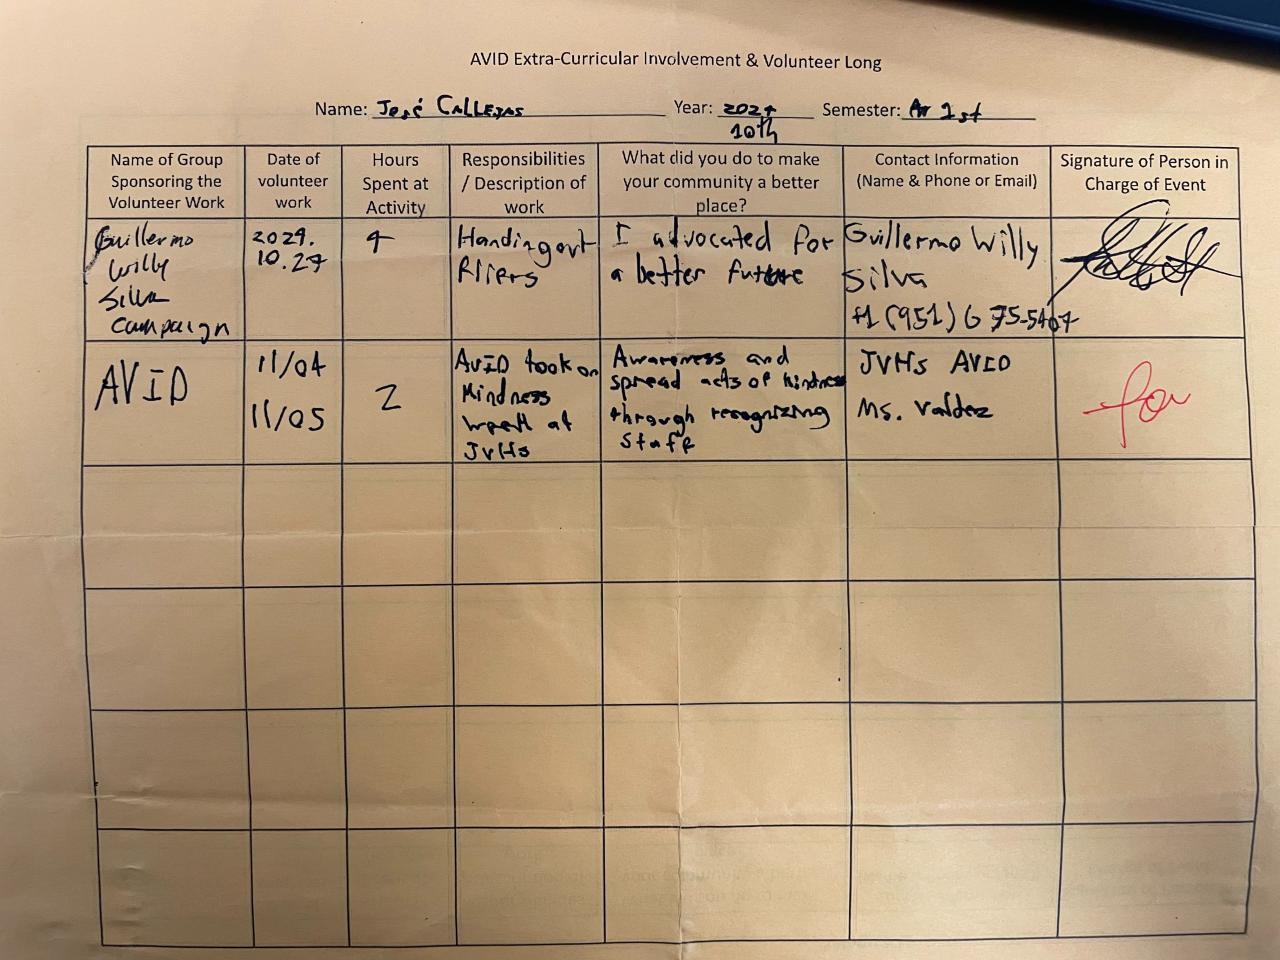 AVID Extra-Curricular Involvement & Volunteer Long
Name: José CALLEJAS Year: 2024 Semester: 1st
10th
Name of Group
Sponsoring the
Volunteer Work
Date of
volunteer
work
Hours
Spent at
Activity
Responsibilities
/ Description of
work
What did you do to make
your community a better
place?
Contact Information
(Name & Phone or Email)
Signature of Person in
Charge of Event
Guillermo
Willy
Silva
Campaign
2024.
10.27
4
Handing out
Fliers
I advocated for
a better future
Guillermo Willy
Silva
+1 (951) 675-5407
AVID
11/04
11/05
2
AVID took on
Kindness
week at
JVHS
Awareness and
spread acts of kindness
through recognizing
Staff
JVHS AVID
Ms. Valdez